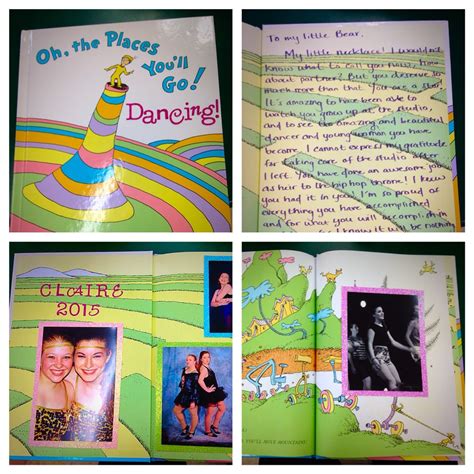 Oh, the Places
You'll
Go!
Dancing!
To my little Bear,
My little necklace! I wouldn't
know what to call you now, how
about partner? But you deserve so
much more than that. You are a star!
It's amazing to have been able to
watch you grow up at the studio,
and to see the amazing and beautiful
dancer and young woman you have
become. I cannot express my gratitude
for taking care of the studio after
I left. You have done an awesome job
as heir to the hip hop throne! I knew
you had it in you! I'm so proud of
everything you have accomplished
and for what you will accomplish in
I know it will be nothing
CLAIRE
2015
YOU'LL MOVE MOUNTAINS!